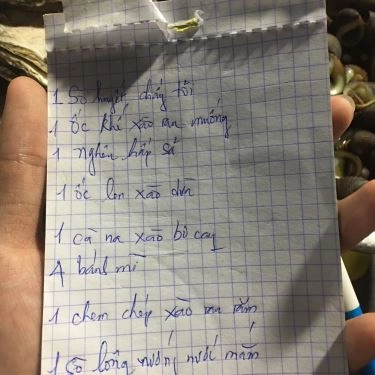 1 Sò huyết cháy tỏi
1 ốc khế xào rau muống
1 nghêu hấp sả
1 ốc len xào dừa
1 cà na xào bơ cay
4 bánh mì
1 chem chép xào rau răm
1 sò lông nướng nước mắm